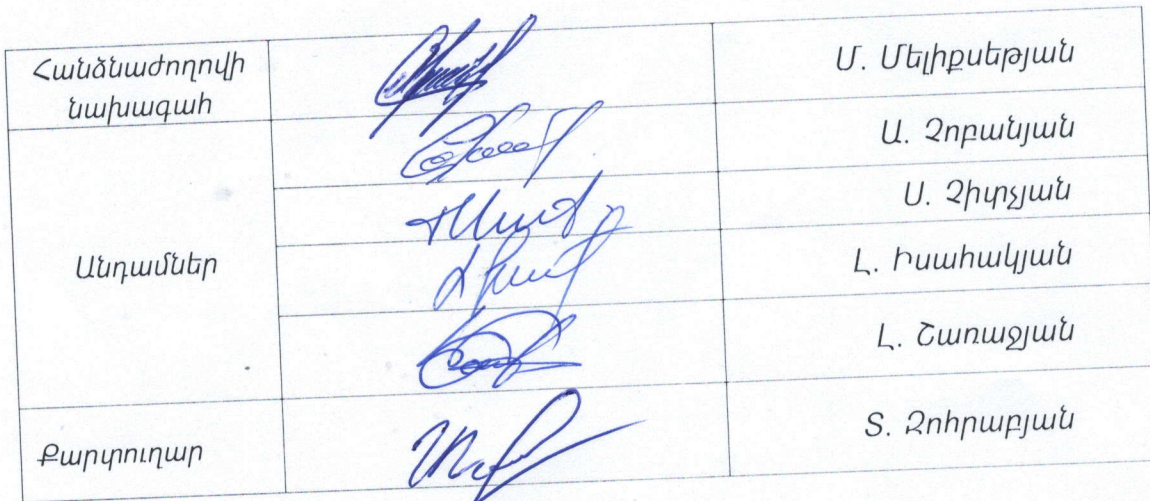 Հանձնաժողովի
նախագահ
Մ. Մելիքսեթյան
Ա. Չոբանյան
Ս. Չիտչյան
Անդամներ
Լ. Իսահակյան
Լ. Շառաջյան
Քարտուղար
Տ. Զոհրաբյան